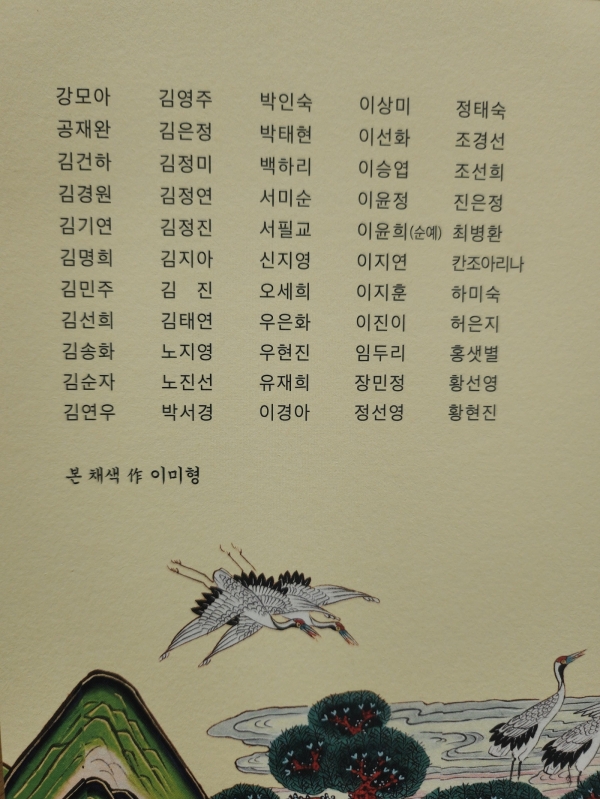 강모아 김영주 박인숙 이상미 정태숙
공재완 김은정 박태현 이선화 조경선
김건하 김정미 백하리 이승엽 조선희
김경원 김정연 서미순 이윤정 진은정
김기연 김정진 서필교 이윤희(순예) 최병환
김명희 김지아 신지영 이지연 칸조아리나
김민주 김 진 오세희 이지훈 하미숙
김선희 김태연 우은화 이진이 허은지
김송화 노지영 우현진 임두리 홍샛별
김순자 노진선 유재희 장민정 황선영
김연우 박서경 이경아 정선영 황현진
본 채색 作 이미형